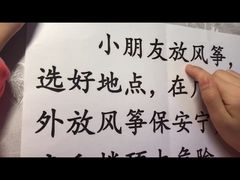 小朋友放风筝，
选好地点，在
外放风筝保安宁